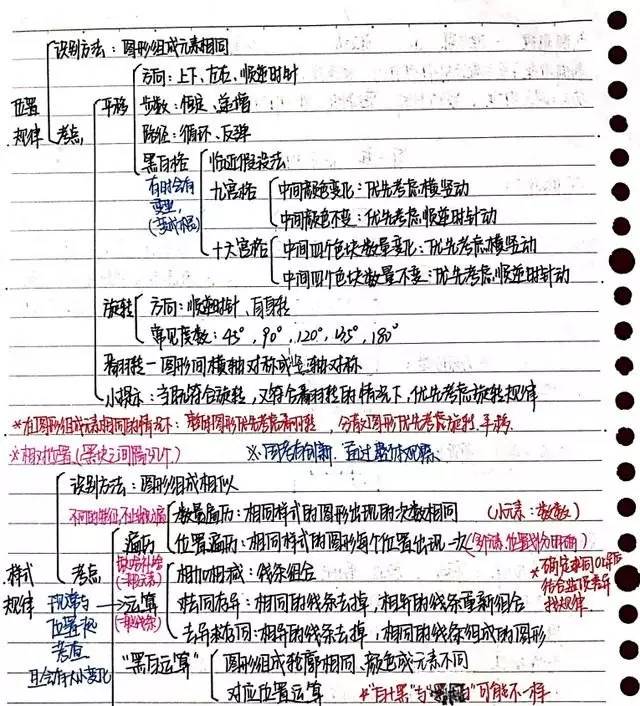 识别方法：图形组成元素相同
方向：上下、左右、顺逆时针
位置 平移 步数：恒定、递增
规律 考点 路径：循环、反弹
黑白格 临近假设法
有时会有 九宫格 中间颜色变化：优先考虑横竖动
中间颜色不变：优先考虑顺逆时针动
十六宫格 中间四个色块数量变化：优先考虑横竖动
中间四个色块数量不变：优先考虑顺逆时针动
旋转 方向：顺逆时针、自身转
常见度数：45°，90°，120°，135°，180°
翻转—图形间横轴对称或竖轴对称
小提示：当既符合旋转，又符合翻转的情况下，优先考虑旋转规律
*在图形组成元素相同的情况下：整体图形优先考虑翻转，分散图形优先考虑旋转、平移
*相对位置（黑块之间隔几个） ※ 通过整体观察
识别方法：图形组成相似
数量遍历：相同样式的图形出现的次数相同 （小元素：数数）
遍历 位置遍历：相同样式的图形每个位置出现一次
样式 考点 相加相减：线条组合 *确定求同or求异
规律 运算 求同去异：相同的线条去掉，相异的线条重新组合 找规律
位置 去异求同：相异的线条去掉，相同的线条组成的图形
考查
且会有大小变化 “黑白运算” 图形组成轮廓相同、颜色或元素不同
对应位置运算 可能不一样